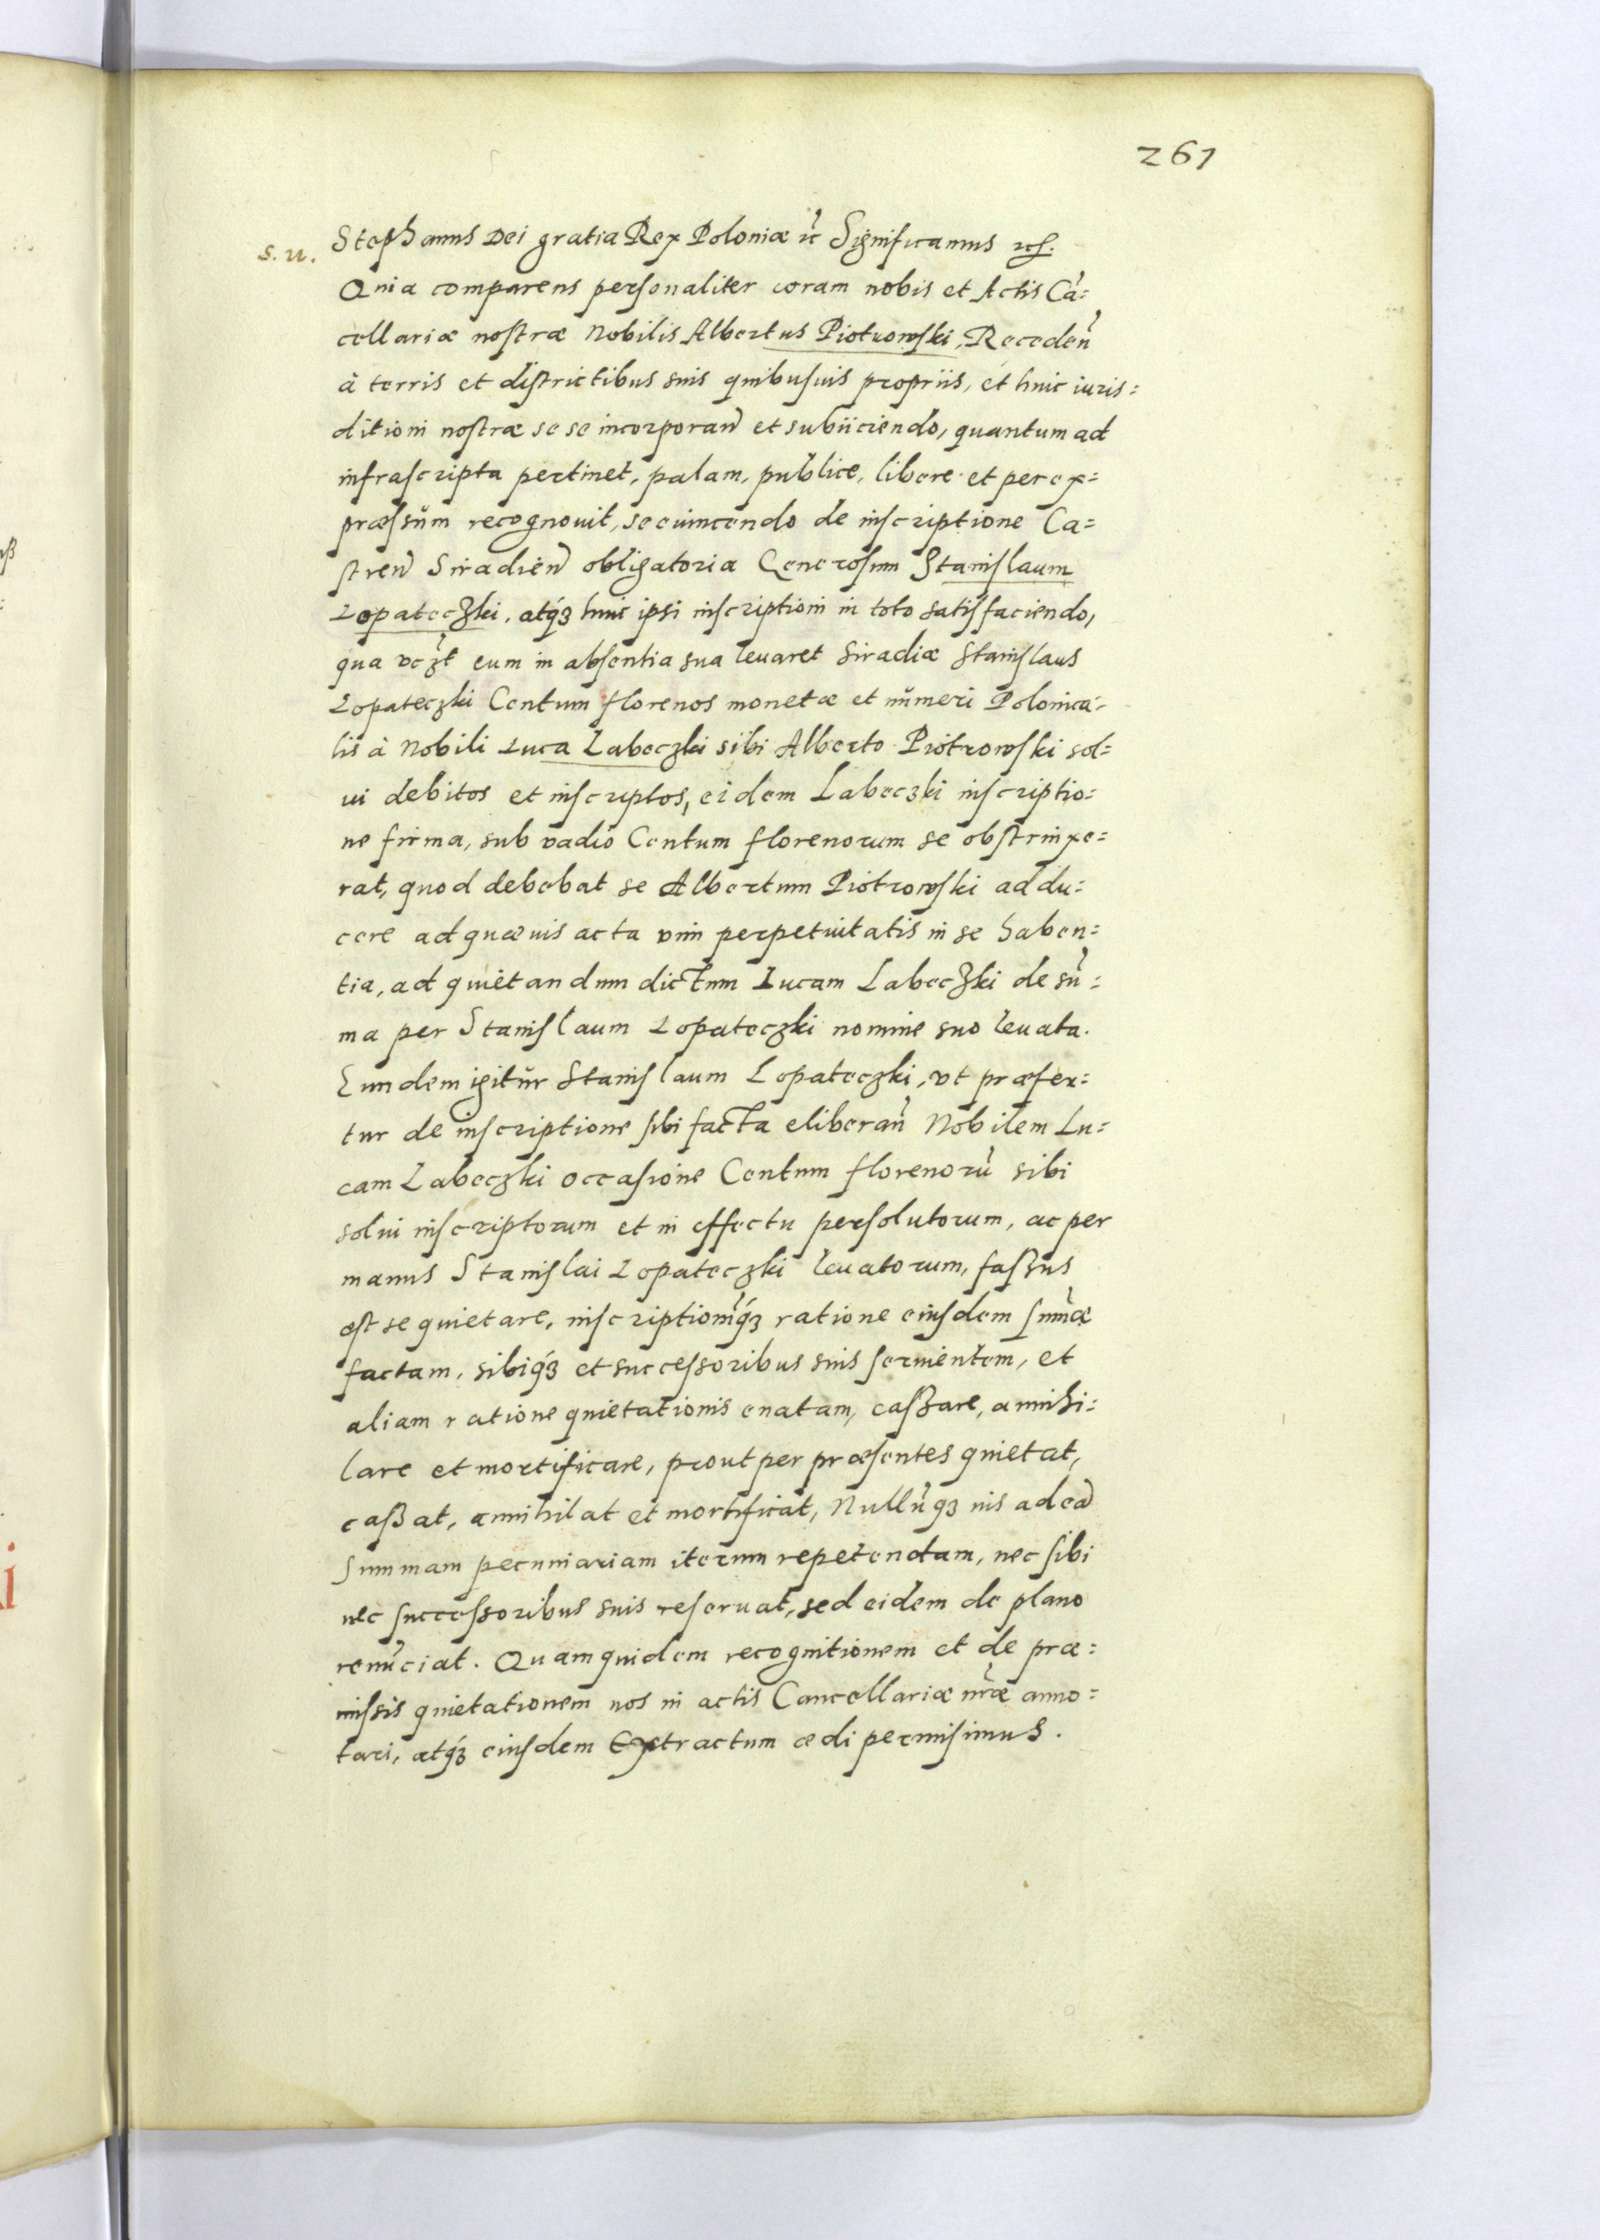 261
S. u.
Stephanus Dei gratia Rex Poloniæ etc̃ Significamus etc̃.
Quia comparens personaliter coram nobis et Actis Cã=
cellariæ nostræ Nobilis Albertus Piotrowski, Receden̄
à terris et districtibus suis quibusuis propriis, et huic iuris=
ditioni nostræ se se incorporan̄ et subiiciendo, quantum ad
infrascripta pertinet, palam, publice, libere et per ex=
præssum recognouit, se euincendo de inscriptione Ca=
stren̄ Siradien̄ obligatoria Generosum Stanislaum
Lopateczki, atq́ꝫ huic ipsi inscriptioni in toto satisfaciendo,
qua vcꝫt eum in absentia sua leuaret Siradiæ Stanislaus
Lopateczki Centum florenos monetæ et numeri Polonica=
lis à Nobili Luca Labeczki sibi Alberto Piotrowski sol=
ui debitos et inscriptos, eidem Labeczki inscriptio=
ne firma, sub vadio Centum florenorum se obstrinxe=
rat, quod debebat se Albertum Piotrowski addu=
cere ad quæuis acta vim perpetuitatis in se haben=
tia, ad quietandum dictum Lucam Labeczki de sũ=
ma per Stanislaum Lopateczki nomine suo leuata.
Eundem igitur Stanislaum Lopateczki, vt præfer=
tur de inscriptione sibi facta eliberan̄ Nobilem Lu=
cam Labeczki occasione Centum florenorũ sibi
solui inscriptorum et in effectu persolutorum, ac per
manus Stanislai Lopateczki leuatorum, faßus
est se quietare, inscriptionẽq́ꝫ ratione eiusdem sum̃æ
factam, sibiq́ꝫ et successoribus suis seruientem, et
aliam ratione quietationis enatam, caßare, annihi=
lare et mortificare, prout per præsentes quietat,
caßat, annihilat et mortificat, Nullũqꝫ ius ad eã
Summam pecuniariam iterum repetendam, nec sibi
nec successoribus suis reseruat, sed eidem de plano
renũciat. Quam quidem recognitionem et de præ=
missis quietationem nos in actis Cancellariæ nr̃æ anno=
tari, atq́ꝫ eiusdem Extractum ædi permisimus.